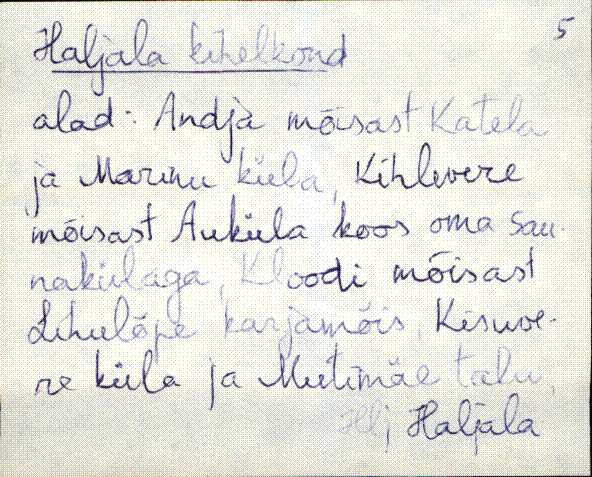 5
Haljala kihelkond
alad: Andja mõisast Katela
ja Marinu küla, Kihlevere
mõisast Auküla koos oma sau-
nakülaga, Kloodi mõisast
Lihulõpe karjamõis, Kisuve-
re küla ja Mutimäe talu,
Hlj, Haljala